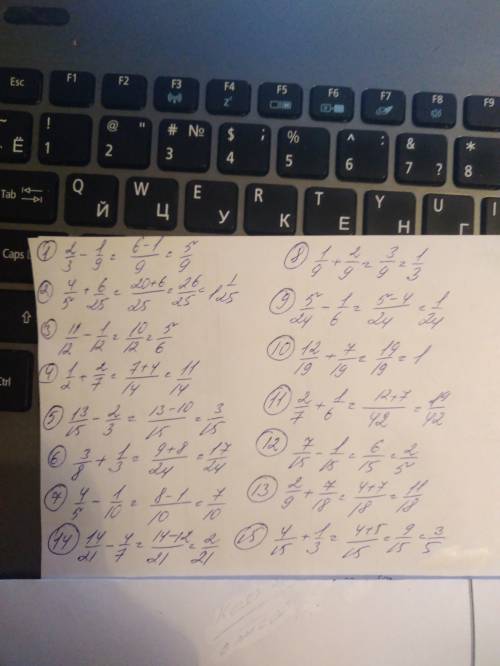 Esc F1 F2 F3 F4 F5 F6 F7 F8 F9
~ Ё ! 1 @ " 2 # № 3 $ ; 4 % 5 ^ : 6 & 7 ? * 8
Tab Q Й W Ц E У R К T Е Y Н U Г
Caps L
Ctrl
1 2/3 - 1/9 = 6-1/9 = 5/9
2 4/5 + 6/25 = 20+6/25 = 26/25 = 1 1/25
3 11/12 - 1/12 = 10/12 = 5/6
4 1/2 + 2/7 = 7+4/14 = 11/14
5 13/15 - 2/3 = 13-10/15 = 3/15
6 3/8 + 1/3 = 9+8/24 = 17/24
7 4/5 - 1/10 = 8-1/10 = 7/10
14 14/21 - 4/7 = 14-12/21 = 2/21
8 1/9 + 2/9 = 3/9 = 1/3
9 5/24 - 1/6 = 5-4/24 = 1/24
10 12/19 + 7/19 = 19/19 = 1
11 2/7 + 1/6 = 12+7/42 = 19/42
12 7/15 - 1/15 = 6/15 = 2/5
13 2/9 + 7/18 = 4+7/18 = 11/18
15 4/15 + 1/3 = 4+5/15 = 9/15 = 3/5